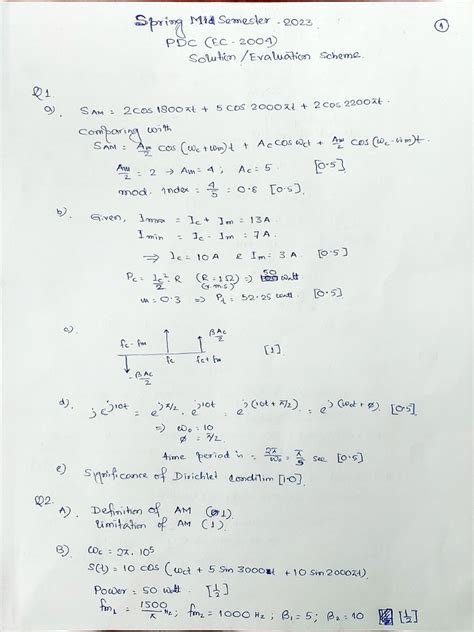 Spring Mid Semester - 2023
①
PDC (EC-2004)
Solution/Evaluation Scheme.
Q1.
a) S_AM = 2cos1800πt + 5cos2000πt + 2cos2200πt.
comparing with
S_AM = Am/2 cos(ωc+ωm)t + Ac cosωct + Am/2 cos(ωc-ωm)t.
Am/2 = 2 → Am = 4; Ac = 5. [0.5]
mod. index = 4/5 = 0.8 [0.5].
b) Given, Imax = Ic + Im = 13A.
Imin = Ic - Im = 7A.
⇒ Ic = 10A & Im = 3A. [0.5]
Pc = Ic²/2 . R (R = 1Ω) ⇒ 50 watt
(r.m.s)
m = 0.3 ⇒ Pt = 52.25 watt. [0.5]
c) βAc/2
fc-fm fc fc+fm [1]
-βAc/2
d) j e^j10t = e^jπ/2 . e^j10t = e^j(10t + π/2) = e^j(ω0t + φ) [0.5]
⇒ ω0 = 10
φ = π/2
time period is = 2π/ω0 = π/5 sec [0.5]
e) Significance of Dirichlet condition [1.0]
Q2.
A) Definition of AM (1)
Limitation of AM (1)
B) ωc = 2π.10⁵
S(t) = 10 cos (ωct + 5 Sin 3000t + 10 Sin 2000πt).
Power = 50 watt. [1/2]
fm₁ = 1500/π Hz; fm₂ = 1000 Hz; β₁ = 5; β₂ = 10 [1/2]